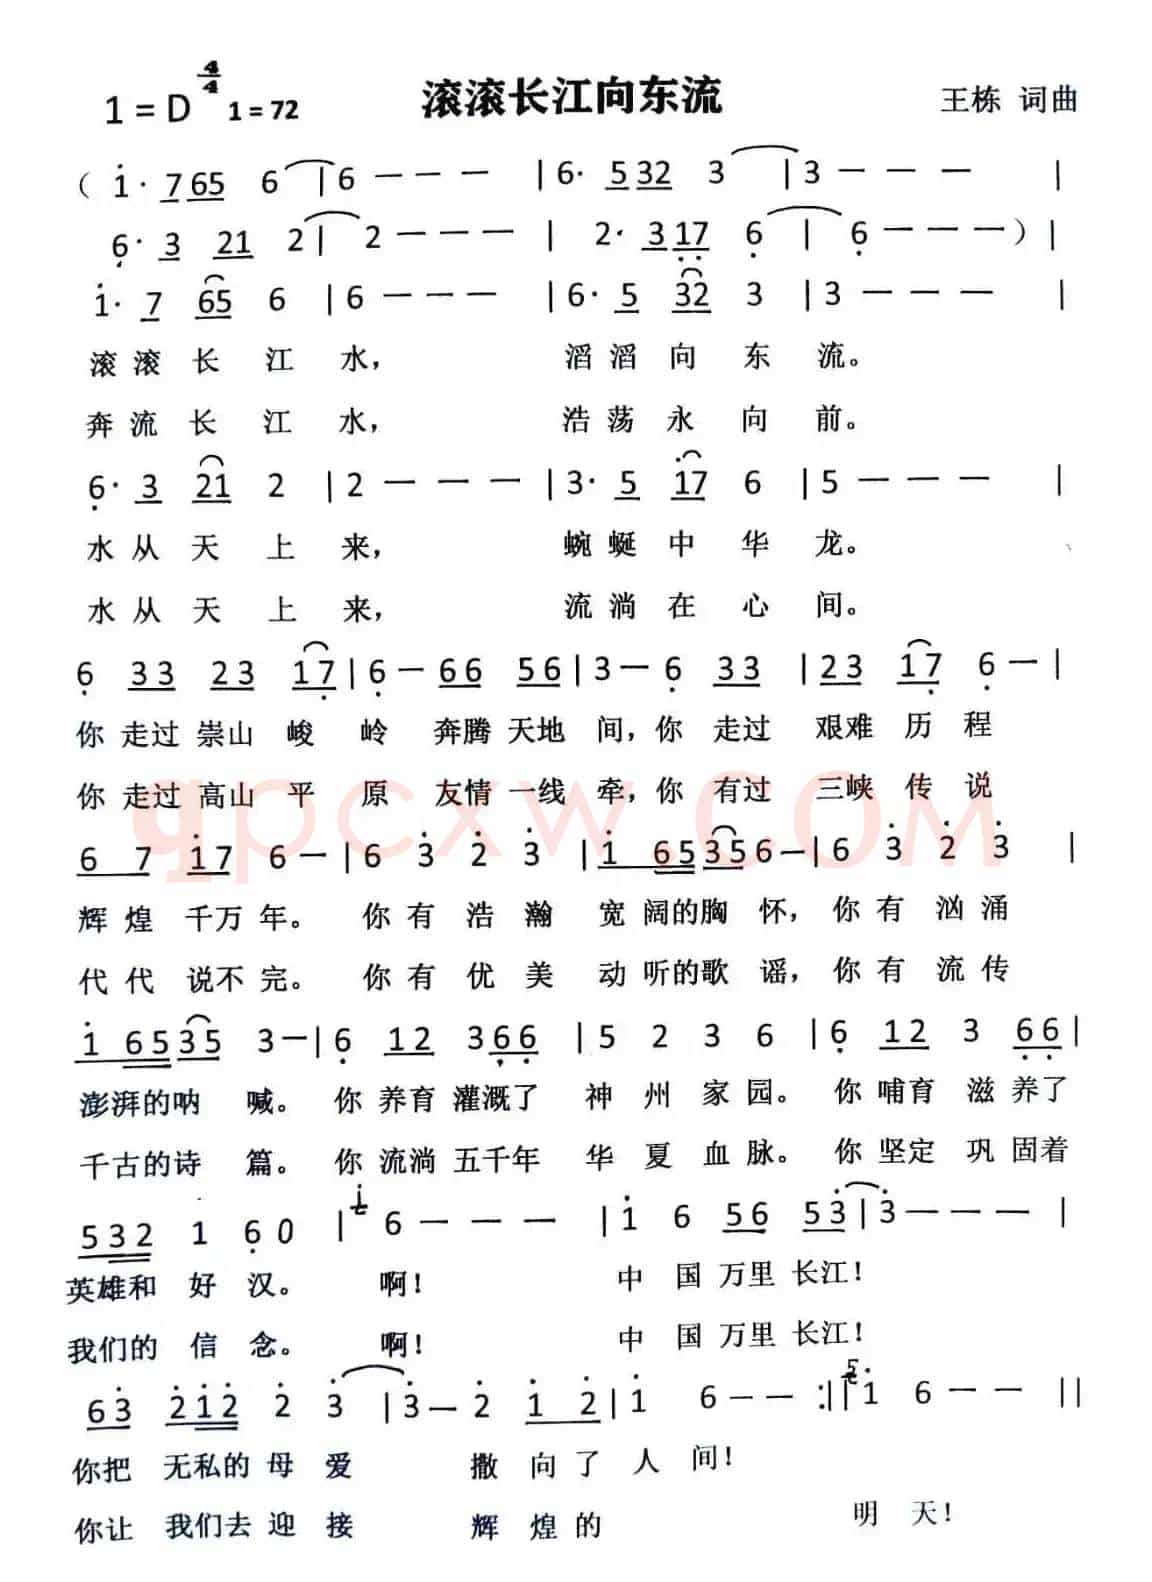 1=D 4/4 1=72 滚滚长江向东流 王栋 词曲
( 1· 7 65 6 | 6 — — — | 6· 5 32 3 | 3 — — — |
6· 3 21 2 | 2 — — — | 2· 3 17 6 | 6 — — — ) |
1· 7 65 6 | 6 — — — | 6· 5 32 3 | 3 — — — |
滚 滚 长 江 水, 滔 滔 向 东 流。
奔 流 长 江 水, 浩 荡 永 向 前。
6· 3 21 2 | 2 — — — | 3· 5 17 6 | 5 — — — |
水 从 天 上 来, 蜿 蜒 中 华 龙。
水 从 天 上 来, 流 淌 在 心 间。
6 33 23 17 | 6 — 66 56 | 3 — 6 33 | 23 17 6 — |
你 走过 崇山 峻 岭 奔腾 天地 间, 你 走过 艰难 历 程
你 走过 高山 平 原 友情 一线 牵, 你 有过 三峡 传 说
qpcxw.com
6 7 17 6 — | 6 3 2 3 | 1 65 35 6 — | 6 3 2 3 |
辉 煌 千万 年。 你 有 浩 瀚 宽 阔的胸 怀, 你 有 汹 涌
代 代 说不 完。 你 有 优 美 动 听的歌 谣, 你 有 流 传
1 65 35 3 — | 6 12 3 66 | 5 2 3 6 | 6 12 3 66 |
澎湃的呐 喊。 你 养育 灌溉了 神 州 家 园。 你 哺育 滋 养了
千古的诗 篇。 你 流淌 五千年 华 夏 血 脉。 你 坚定 巩 固着
532 1 6 0 | 1 6 — — — | 1 6 56 53 | 3 — — — |
英雄和 好 汉。 啊! 中 国 万里 长江!
我们的 信 念。 啊! 中 国 万里 长江!
63 212 2 3 | 3 — 2 1 2 | 1 6 — — :|| 5 1 6 — — ||
你把 无私的 母 爱 撒 向 了 人 间!
你让 我们去 迎 接 辉 煌 的 明 天!